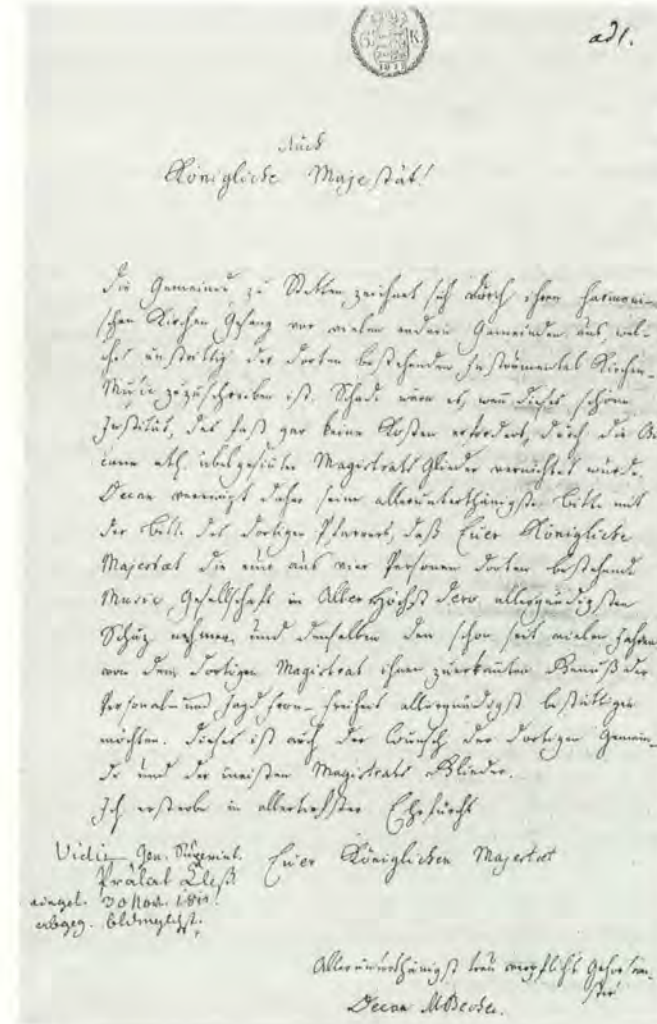 ad 1.
Königliche Majestät!
Die Gemeinde zu Stetten zeichnet sich durch ihren harmoni-
schen Kirchen Gesang vor vielen andern Gemeinden aus, wel-
ches unstrittig der dorten bestehenden Instrumental Kirchen-
Music zuzuschreiben ist. Schade wäre es, wenn dieses schöne
Institut, das fast gar keine Kosten erfordert, durch die
übelgesinnter Magistrats Glieder vernichtet würde.
Decan vereinigt daher seine allerunterthänigste Bitte mit
der Bitte des dortigen Pfarrers, daß Euer Königliche
Majestaet die nur aus vier Personen dorten bestehende
Music Gesellschaft in Allerhöchst dero allergnädigsten
Schuz nehmen, und denselben den schon seit vielen Jahren
von dem dortigen Magistrat ihnen zuerkannten Genuß der
Personal- und Jagd Fron-Freiheit allergnädigst bestättigen
möchten. Dieses ist auch der Wunsch der dortigen Gemein-
de und der meisten Magistrats Glieder.
Ich ersterbe in allertiefster Ehrfurcht
Vidit Gen. Superint.
Euer Königlichen Majestaet
Prälat
30 Nov.
Allerunterthänigst treu verpflicht gehorsam-
ster
Decan M.